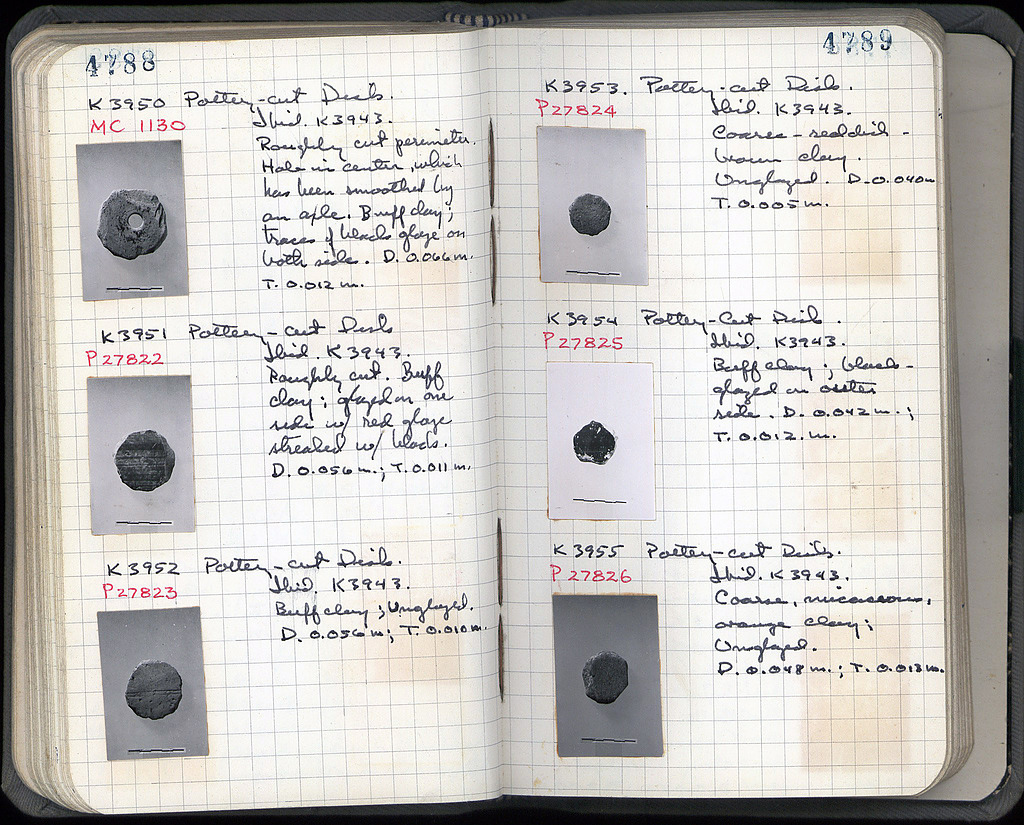 4788
K 3950 Pottery-cut Disk.
MC 1130
Ibid. K3943.
Roughly cut perimeter.
Hole in center, which
has been smoothed by
an axle. Buff clay;
traces of black glaze on
both sides. D. 0.066 m.
T. 0.012 m.
K 3951 Pottery-cut Disk
P27822
Ibid. K3943.
Roughly cut. Buff
clay; glazed on one
side w/ red glaze
streaked w/ black.
D. 0.056 m.; T. 0.011 m.
K 3952 Pottery-cut Disk.
P27823
Ibid. K3943.
Buff clay; Unglazed.
D. 0.056 m; T. 0.010 m.
4789
K 3953. Pottery-cut Disk.
P27824
Ibid. K3943.
Coarse - reddish -
brown clay.
Unglazed. D. 0.040m
T. 0.005 m.
K 3954 Pottery-Cut Disk.
P27825
Ibid. K3943.
Buff clay; black-
glazed on outer
side. D. 0.042 m.;
T. 0.012. m.
K 3955 Pottery-cut Disk.
P27826
Ibid. K3943.
Coarse, micaceous,
orange clay;
Unglazed.
D. 0.048 m.; T. 0.013 m.